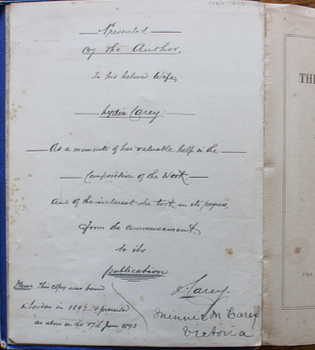 Presented
By the Author.
To his beloved Wife,
Lydia Carey.
As a memento of her valuable help in the
Composition of the Work
And of the interest she took in its progress
from the commencement
to its
publication
J. Carey.
Memo This copy was bound
in London in 1892 & presented
as above on the 17th June 1893
Minnie M. Carey
Victoria
TH